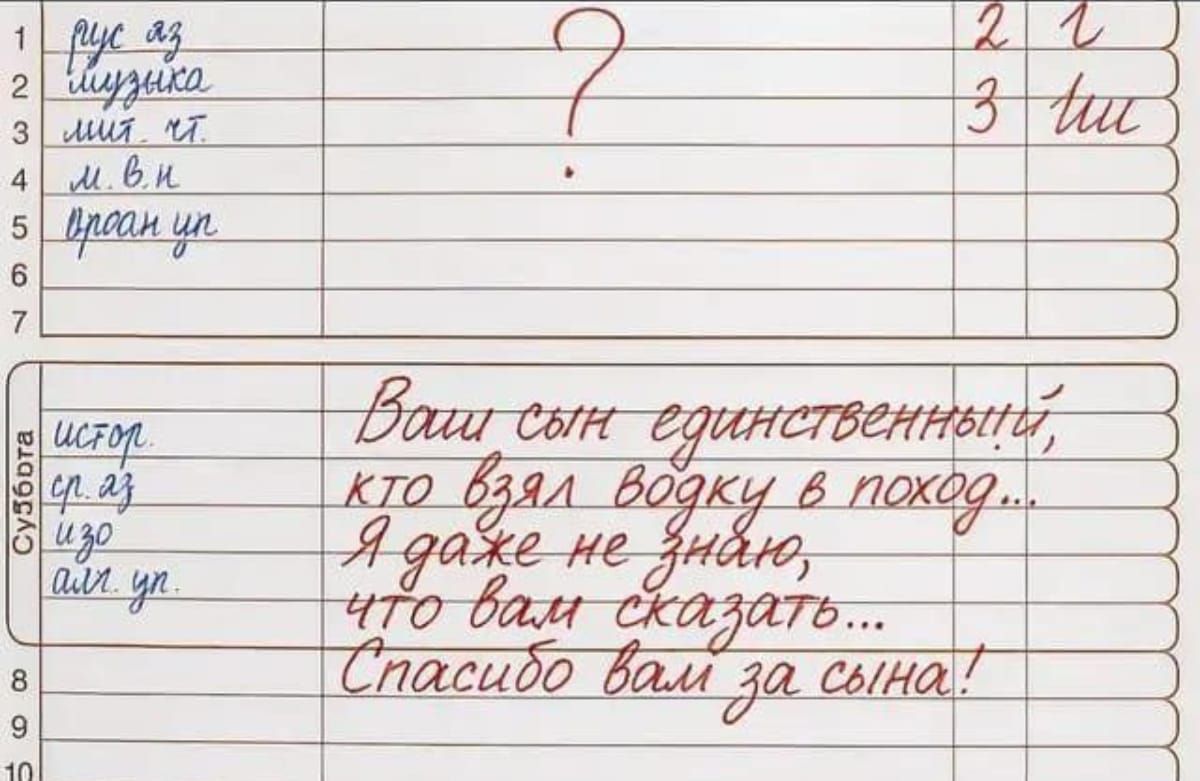 1 рус яз 2
2 музыка
3 лит. чт. 3
4 м. в. н
5
6
7
Суббота
истор.
ср. яз
изо
алг. уп.
?
Ваш сын единственный,
кто взял водку в поход...
Я даже не знаю,
что вам сказать...
Спасибо вам за сына!
8
9
10